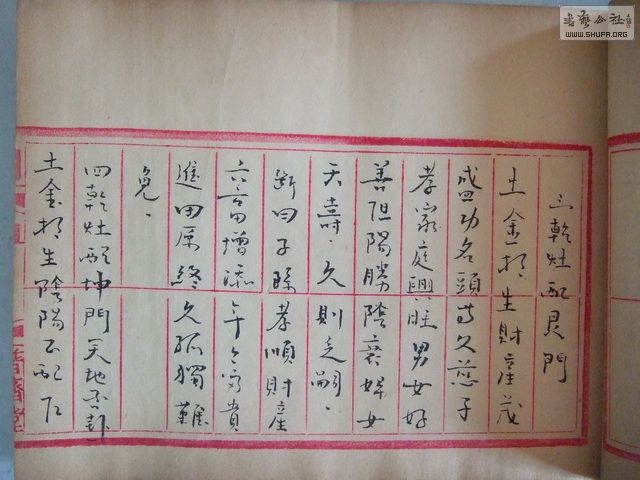 三乾灶配艮門
土金相生財産茂
盛功名頭父慈子
孝家庭興旺男女好
善但陽勝陰衰婦女
夭壽·久則乏嗣·
斷曰子孫孝順財產
六畜增添年年富貴
進田原終久孤獨難
免·
四乾灶配坤門天地否卦
土金相生陰陽正配
书艺公社
WWW.SHUFA.ORG